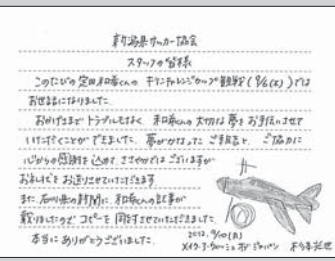 新潟県サッカー協会
スタッフの皆様
このたびの 和希くんの キリンチャレンジカップ観戦(9/6(木))では
お世話になりました。
おかげさまでトラブルもなく、和希くんの大切な夢をお手伝いさせて
いただくことができました。夢がかなったご報告と、ご協力に
心からの感謝を込めて、ささやかではございますが
お礼状をお送りさせていただきます
また、石川県の新聞に、和希くんの記事が
載りましたので コピーを同封させていただきました。
本当にありがとうございました。
2012. 9/10(月)
メイク・ア・ウィッシュ オブ ジャパン